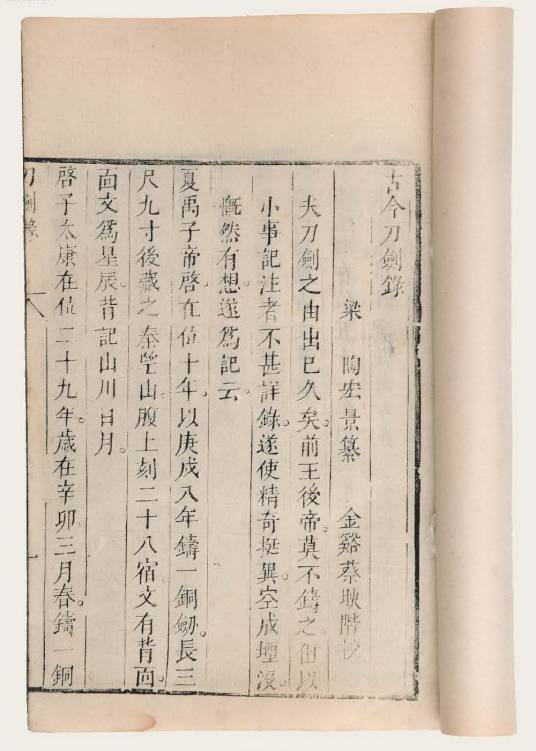 古今刀劍錄
梁 陶宏景纂 金谿蔡映階校
夫刀劍之由出已久矣。前王後帝。莫不鑄之。但以
小事記注者不甚詳錄。遂使精奇挺異。空成堙沒。
慨然有想。遂爲記云。
夏禹子帝啓。在位十年。以庚戌八年鑄一銅劒。長三
尺九寸。後藏之秦望山。腹上刻二十八宿。文有背面。
面文爲星辰。背記山川日月。
啓子太康在位二十九年。歲在辛卯三月春。鑄一銅
刀劍錄 一